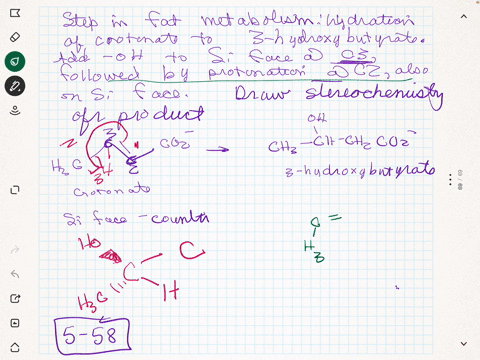 Step in fat metabolism: hydration
of crotonate to 3-hydroxybutyrate.
Add -OH to Si face @ C3,
followed by protonation @ C2, also
on Si face. Draw stereochemistry
of product
OH
H3C H CO2-
→ CH3-CH-CH2CO2-
3-hydroxybutyrate
Crotonate
Si face - counter
Ho C
C
H3C H
C =
H
3
5-58